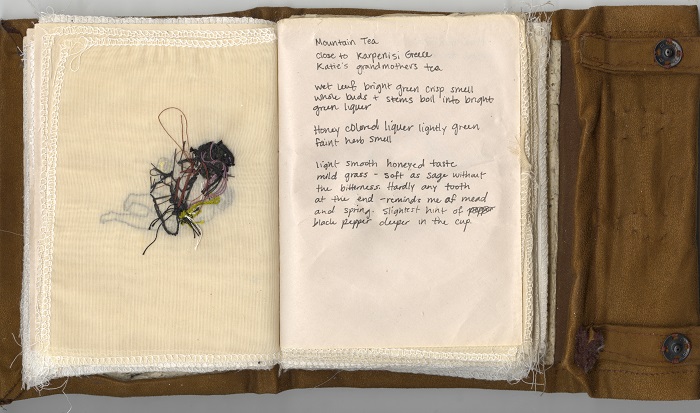 Mountain Tea
close to Karpenisi Greece
Katie's grandmothers tea
wet leaf bright green crisp smell
whole buds + stems boil into bright
green liquer
Honey colored liquer lightly green
faint herb smell
light smooth honeyed taste
mild grass - soft as sage without
the bitterness. Hardly any tooth
at the end - reminds me of mead
and spring. slightest hint of
black pepper deeper in the cup